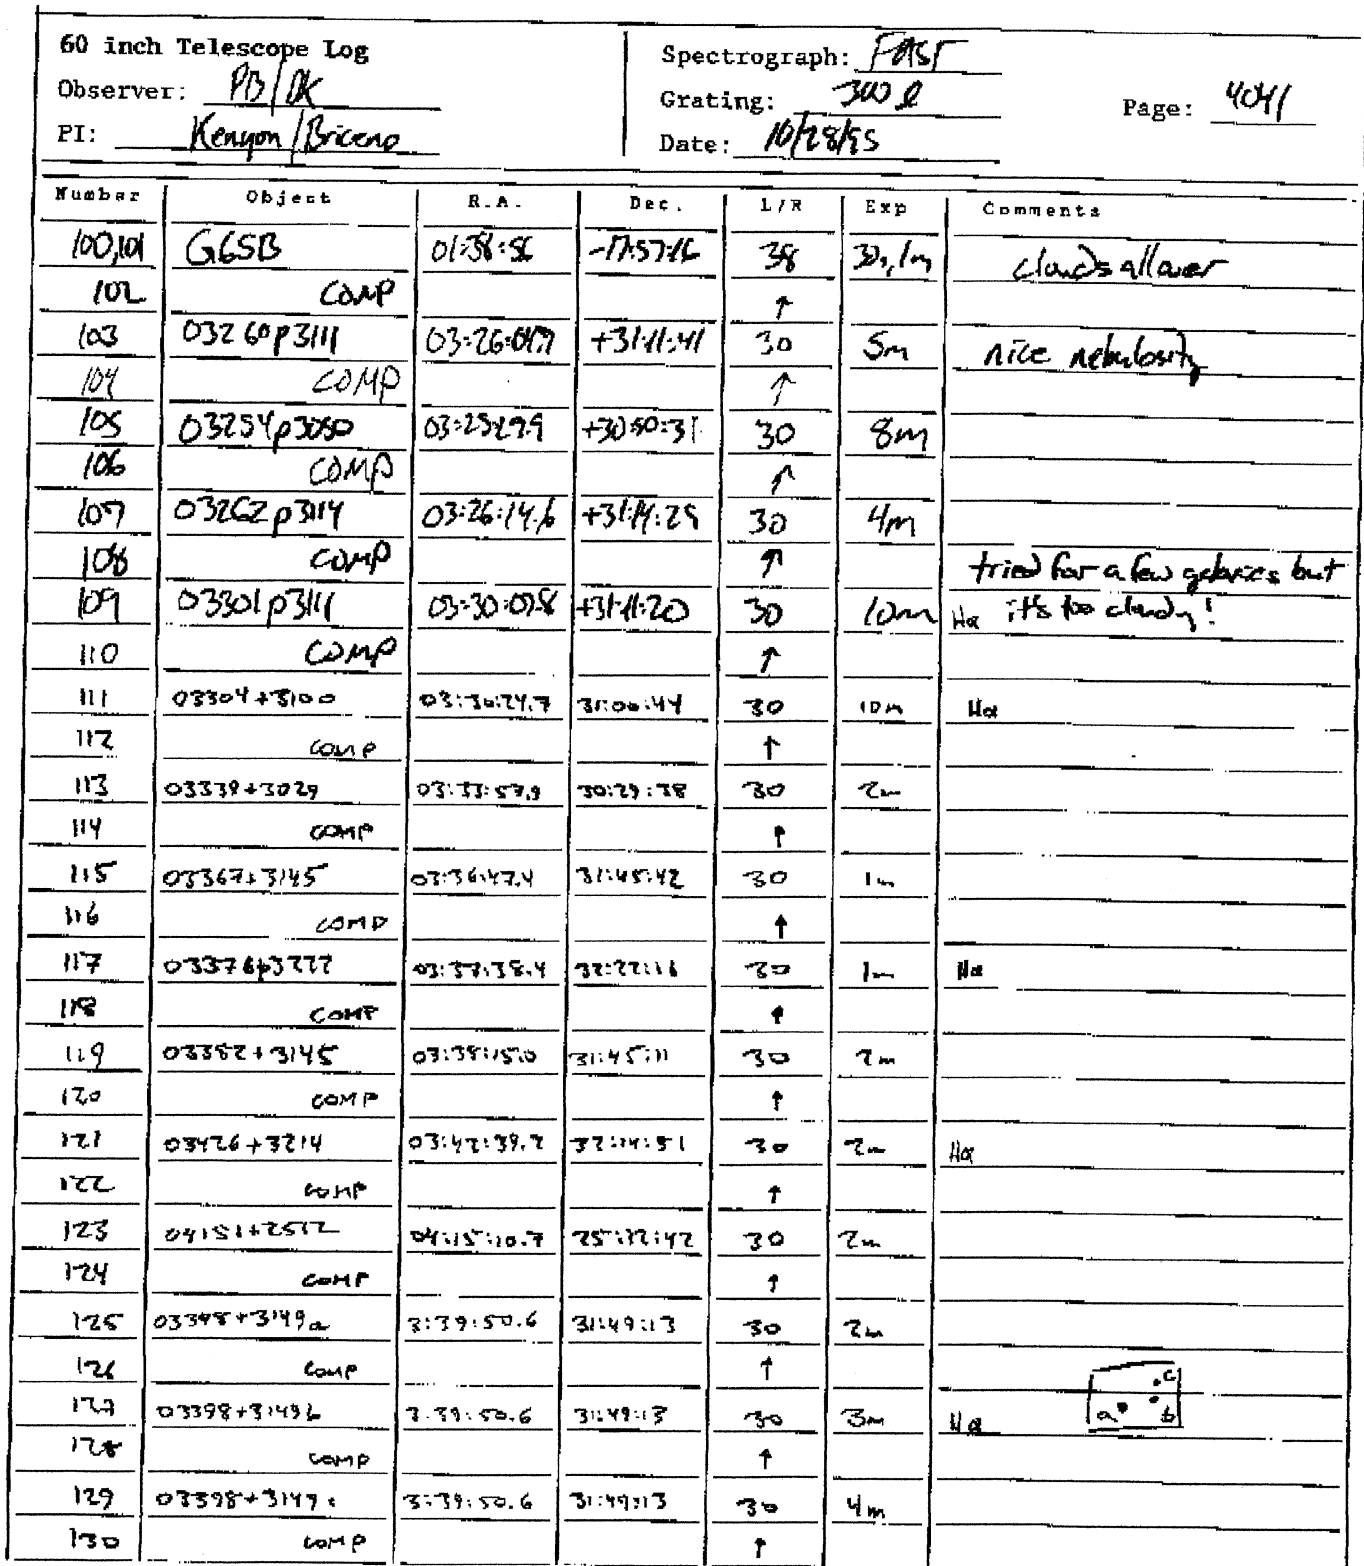 60 inch Telescope Log
Observer: PB/DK
PI: Kenyon/Briceno
Spectrograph: FAST
Grating: 300 l
Date: 10/28/95
Page: 4041
Number Object R.A. Dec. L/R Exp Comments
100,101 G65B 01:38:56 -17:57:16 38 30s,1m clouds all over
102 COMP ↑
103 03260p3111 03:26:04.7 +31:11:41 30 5m nice nebulosity
104 COMP ↑
105 03254p3050 03:25:29.9 +30:50:31 30 8m
106 COMP ↑
107 03262p3114 03:26:14.6 +31:14:29 30 4m
108 COMP ↑ tried for a few galaxies but
109 03301p3111 03:30:07.8 +31:11:20 30 10m Hα it's too cloudy!
110 COMP ↑
111 03304+3100 03:30:24.7 31:00:44 30 10m Hα
112 COMP ↑
113 03339+3029 03:33:57.9 30:29:38 30 2m
114 COMP ↑
115 03367+3145 03:36:47.4 31:45:42 30 1m
116 COMP ↑
117 03376p3222 03:37:38.4 32:22:16 30 1m Hα
118 COMP ↑
119 03382+3145 03:38:15.0 31:45:11 30 2m
120 COMP ↑
121 03426+3214 03:42:39.2 32:14:51 30 2m Hα
122 COMP ↑
123 04151+2532 04:15:10.7 25:32:42 30 2m
124 COMP ↑
125 03398+3149a 3:39:50.6 31:49:13 30 2m
126 COMP ↑ .c
127 03398+3149b 3:39:50.6 31:49:13 30 3m Hα a b
128 COMP ↑
129 03398+3149c 3:39:50.6 31:49:13 30 4m
130 COMP ↑